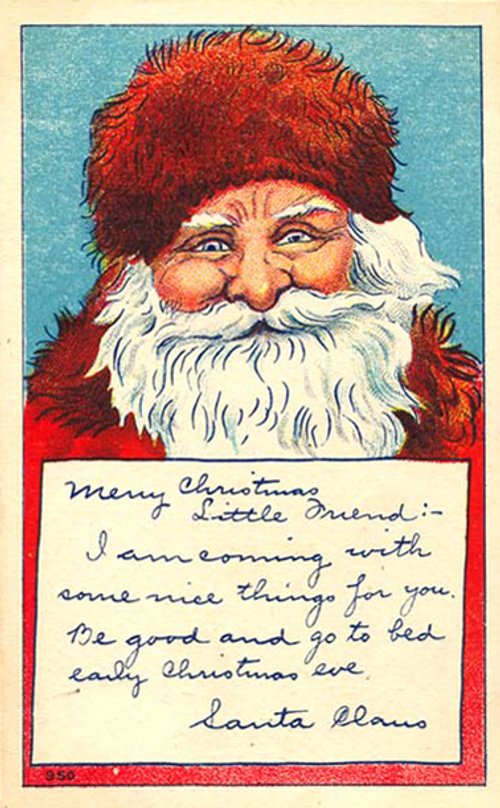 Merry Christmas
Little Friend:-
I am coming with
some nice things for you.
Be good and go to bed
early Christmas eve
Santa Claus
950